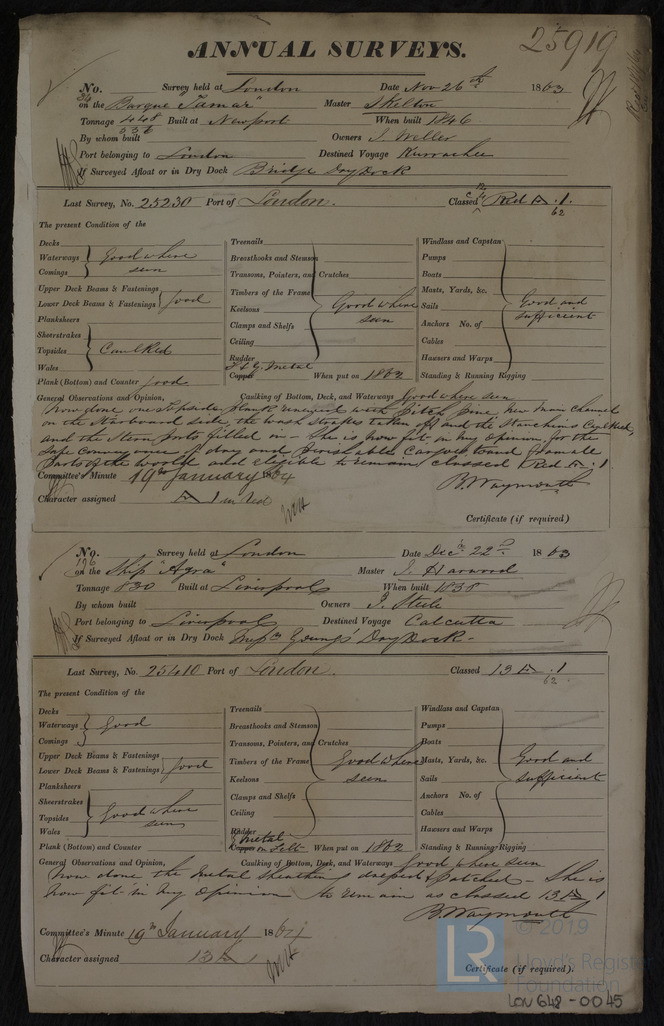 25919
ANNUAL SURVEYS.
No. 34 Survey held at London Date Nov 26th 1863
on the Barque "Tamar" Master Skelton
Tonnage 448 536 Built at Newport When built 1846
By whom built Owners J. Weller
Port belonging to London Destined Voyage Kurrachee
If Surveyed Afloat or in Dry Dock Bridge Dry Dock
Last Survey, No. 25230 Port of London. Classed Red A.1 62
The present Condition of the
Decks Treenails Windlass and Capstan
Waterways } Good where seen Breasthooks and Stemson Pumps
Comings Transoms, Pointers, and Crutches Boats
Upper Deck Beams & Fastenings Timbers of the Frame Masts, Yards, &c.
Lower Deck Beams & Fastenings } good Keelsons Good where seen Sails Good and sufficient
Planksheers Clamps and Shelfs Anchors No. of
Sheerstrakes Ceiling Cables
Topsides } Caulked Rudder Hawsers and Warps
Wales Copper Metal When put on 1862 Standing & Running Rigging
Plank (Bottom) and Counter good
General Observations and Opinion, Caulking of Bottom, Deck, and Waterways Good where seen
Now done one topside plank renewed with Pitch Pine, new main channel
on the Starboard side, the wash strakes taken off and the Stanchions Caulked,
and the Stern ports filled in - She is now fit in my Opinion for the
safe conveyance of dry and perishable Cargoes to and from all
parts of the world and eligible to remain classed Red A.1.
Committee's Minute 19th January 1864 B. Waymouth
Character assigned A 1 in Red
Certificate (if required)
No. 196 Survey held at London Date Decr 22nd 1863
on the Ship "Agra" Master J. Harwood
Tonnage 830 Built at Liverpool When built 1858
By whom built Owners J. Steele
Port belonging to Liverpool Destined Voyage Calcutta
If Surveyed Afloat or in Dry Dock Messrs Young's Dry Dock -
Last Survey, No. 25410 Port of London. Classed 13 A.1 62
The present Condition of the
Decks Treenails Windlass and Capstan
Waterways } Good Breasthooks and Stemson Pumps
Comings Transoms, Pointers, and Crutches Boats
Upper Deck Beams & Fastenings Timbers of the Frame Good where seen Masts, Yards, &c. Good and sufficient
Lower Deck Beams & Fastenings } good Keelsons Sails
Planksheers Clamps and Shelfs Anchors No. of
Sheerstrakes Ceiling Cables
Topsides } Good where seen Rudder Hawsers and Warps
Wales Copper Metal on Felt When put on 1862 Standing & Running Rigging
Plank (Bottom) and Counter
General Observations and Opinion, Caulking of Bottom, Deck, and Waterways Good where seen
Now done the metal sheathing dressed & patched - She is
now fit in my Opinion to remain as classed 13 A 1
B. Waymouth
Committee's Minute 19th January 1864
Character assigned 13 A 1
Certificate (if required).
LR
© 2019
Lloyd's Register
Foundation
LON 648-0045